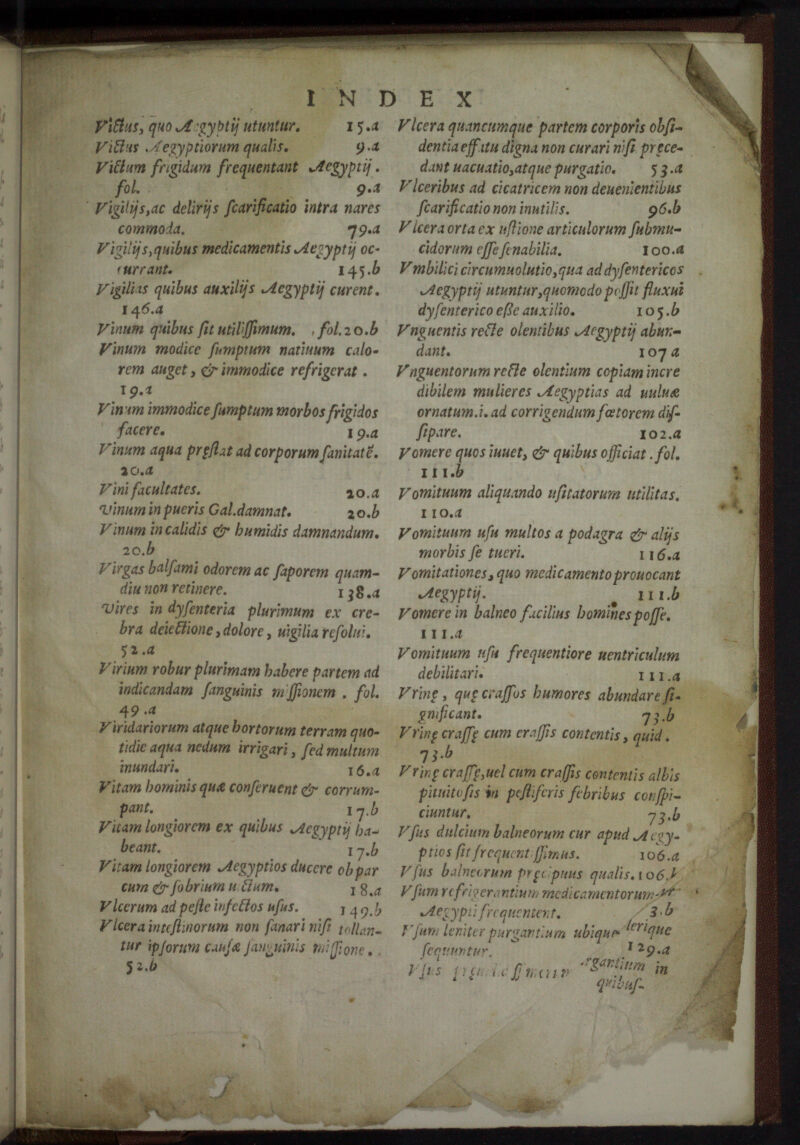 INDEX
Victus, quo Aegyptij utuntur. 15.a
Victus Aegyptiorum qualis. 9.a
Victum frigidum frequentant Aegyptij.
fol. 9.a
Vigilijs, ac delirijs scarificatio intra nares
commoda. 79.a
Vigilijs, quibus medicamentis Aegyptij oc-
currant. 145.b
Vigilias quibus auxilijs Aegyptij curent.
146.a
Vinum quibus sit utilissimum. fol. 20.b
Vinum modice sumptum natiuum calo-
rem auget, & immodice refrigerat.
19.a
Vinum immodice sumptum morbos frigidos
facere. 19.a
Vinum aqua pręstat ad corporum sanitatē.
20.a
Vini facultates. 20.a
vinum in pueris Gal. damnat. 20.b
Vinum in calidis & humidis damnandum.
20.b
Virgas balsami odorem ac saporem quam-
diu non retinere. 138.a
Vires in dysenteria plurimum ex cre-
bra deiectione, dolore, uigilia resolui.
52.a
Virium robur plurimam habere partem ad
indicandam sanguinis missionem. fol.
49.a
Viridariorum atque hortorum terram quo-
tidie aqua nedum irrigari, sed multum
inundari. 16.a
Vitam hominis quæ conseruent & corrum-
pant. 17.b
Vitam longiorem ex quibus Aegyptij ha-
beant. 17.b
Vitam longiorem Aegyptios ducere ob par
cum & sobrium uictum. 18.a
Vlcerum ad peste infectos usus. 149.b
Vlcera intestinorum non sanari nisi tollan-
tur ipsorum causæ sanguinis missione.
52.b
Vlcera quancumque partem corporis obsi-
dentia effatu digna non curari nisi pręce-
dant uacuatio, atque purgatio. 53.a
Vlceribus ad cicatricem non deuenientibus
scarificatio non inutilis. 96.b
Vlcera orta ex ustione articulorum submu-
cidorum esse senabilia. 100.a
Vmbilici circumuolutio, qua ad dysentericos
Aegyptij utuntur, quomodo possit fluxui
dysenterico esse auxilio. 105.b
Vnguentis recte olentibus Aegyptij abun-
dant. 107 a
Vnguentorum recte olentium copiam incre
dibilem mulieres Aegyptias ad uuluæ
ornatum. i. ad corrigendum fœtorem dis-
sipare. 102.a
Vomere quos iuuet, & quibus officiat. fol.
111.b
Vomituum aliquando usitatorum utilitas.
110.a
Vomituum usu multos a podagra & alijs
morbis se tueri. 116.a
Vomitationes, quo medicamento prouocant
Aegyptij. 111.b
Vomere in balneo facilius homines posse.
111.a
Vomituum usu frequentiore uentriculum
debilitari. 111.a
Vrinę, quę crassos humores abundare si-
gnificant. 73.b
Vrinę crassę cum crassis contentis, quid.
73.b
Vrinę crassę, uel cum crassis contentis albis
pituitosis in pestiferis febribus conspi-
ciuntur. 73.b
Vsus dulcium balneorum cur apud Aegy-
ptios sit frequentissimus. 106.a
Vsus balneorum pręcipuus qualis. 106.b
Vsum refrigerantium medicamentorum
Aegyptij frequentent. 3.b
Vsum leniter purgantium ubique
sequuntur. 129.a
Vsus in
quibus-